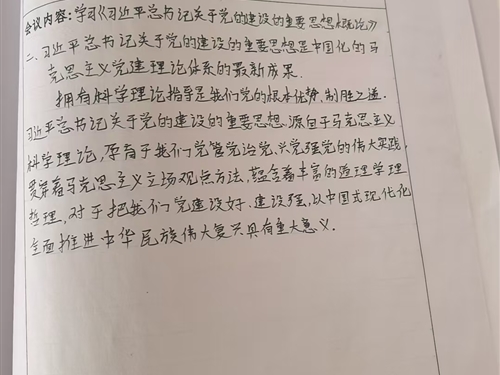 会议内容:学习《习近平总书记关于党的建设的重要思想概论》
二、习近平总书记关于党的建设的重要思想是中国化的马
克思主义党建理论体系的最新成果.
拥有科学理论指导是我们党的根本优势、制胜之道.
习近平总书记关于党的建设的重要思想,源自于马克思主义
科学理论,原有于我们党管党治党、兴党强党的伟大实践,
贯穿着马克思主义立场观点方法,蕴含着丰富的道理学理
哲理,对于把我们党建设好、建设强、以中国式现代化
全面推进中华民族伟大复兴具有重大意义.